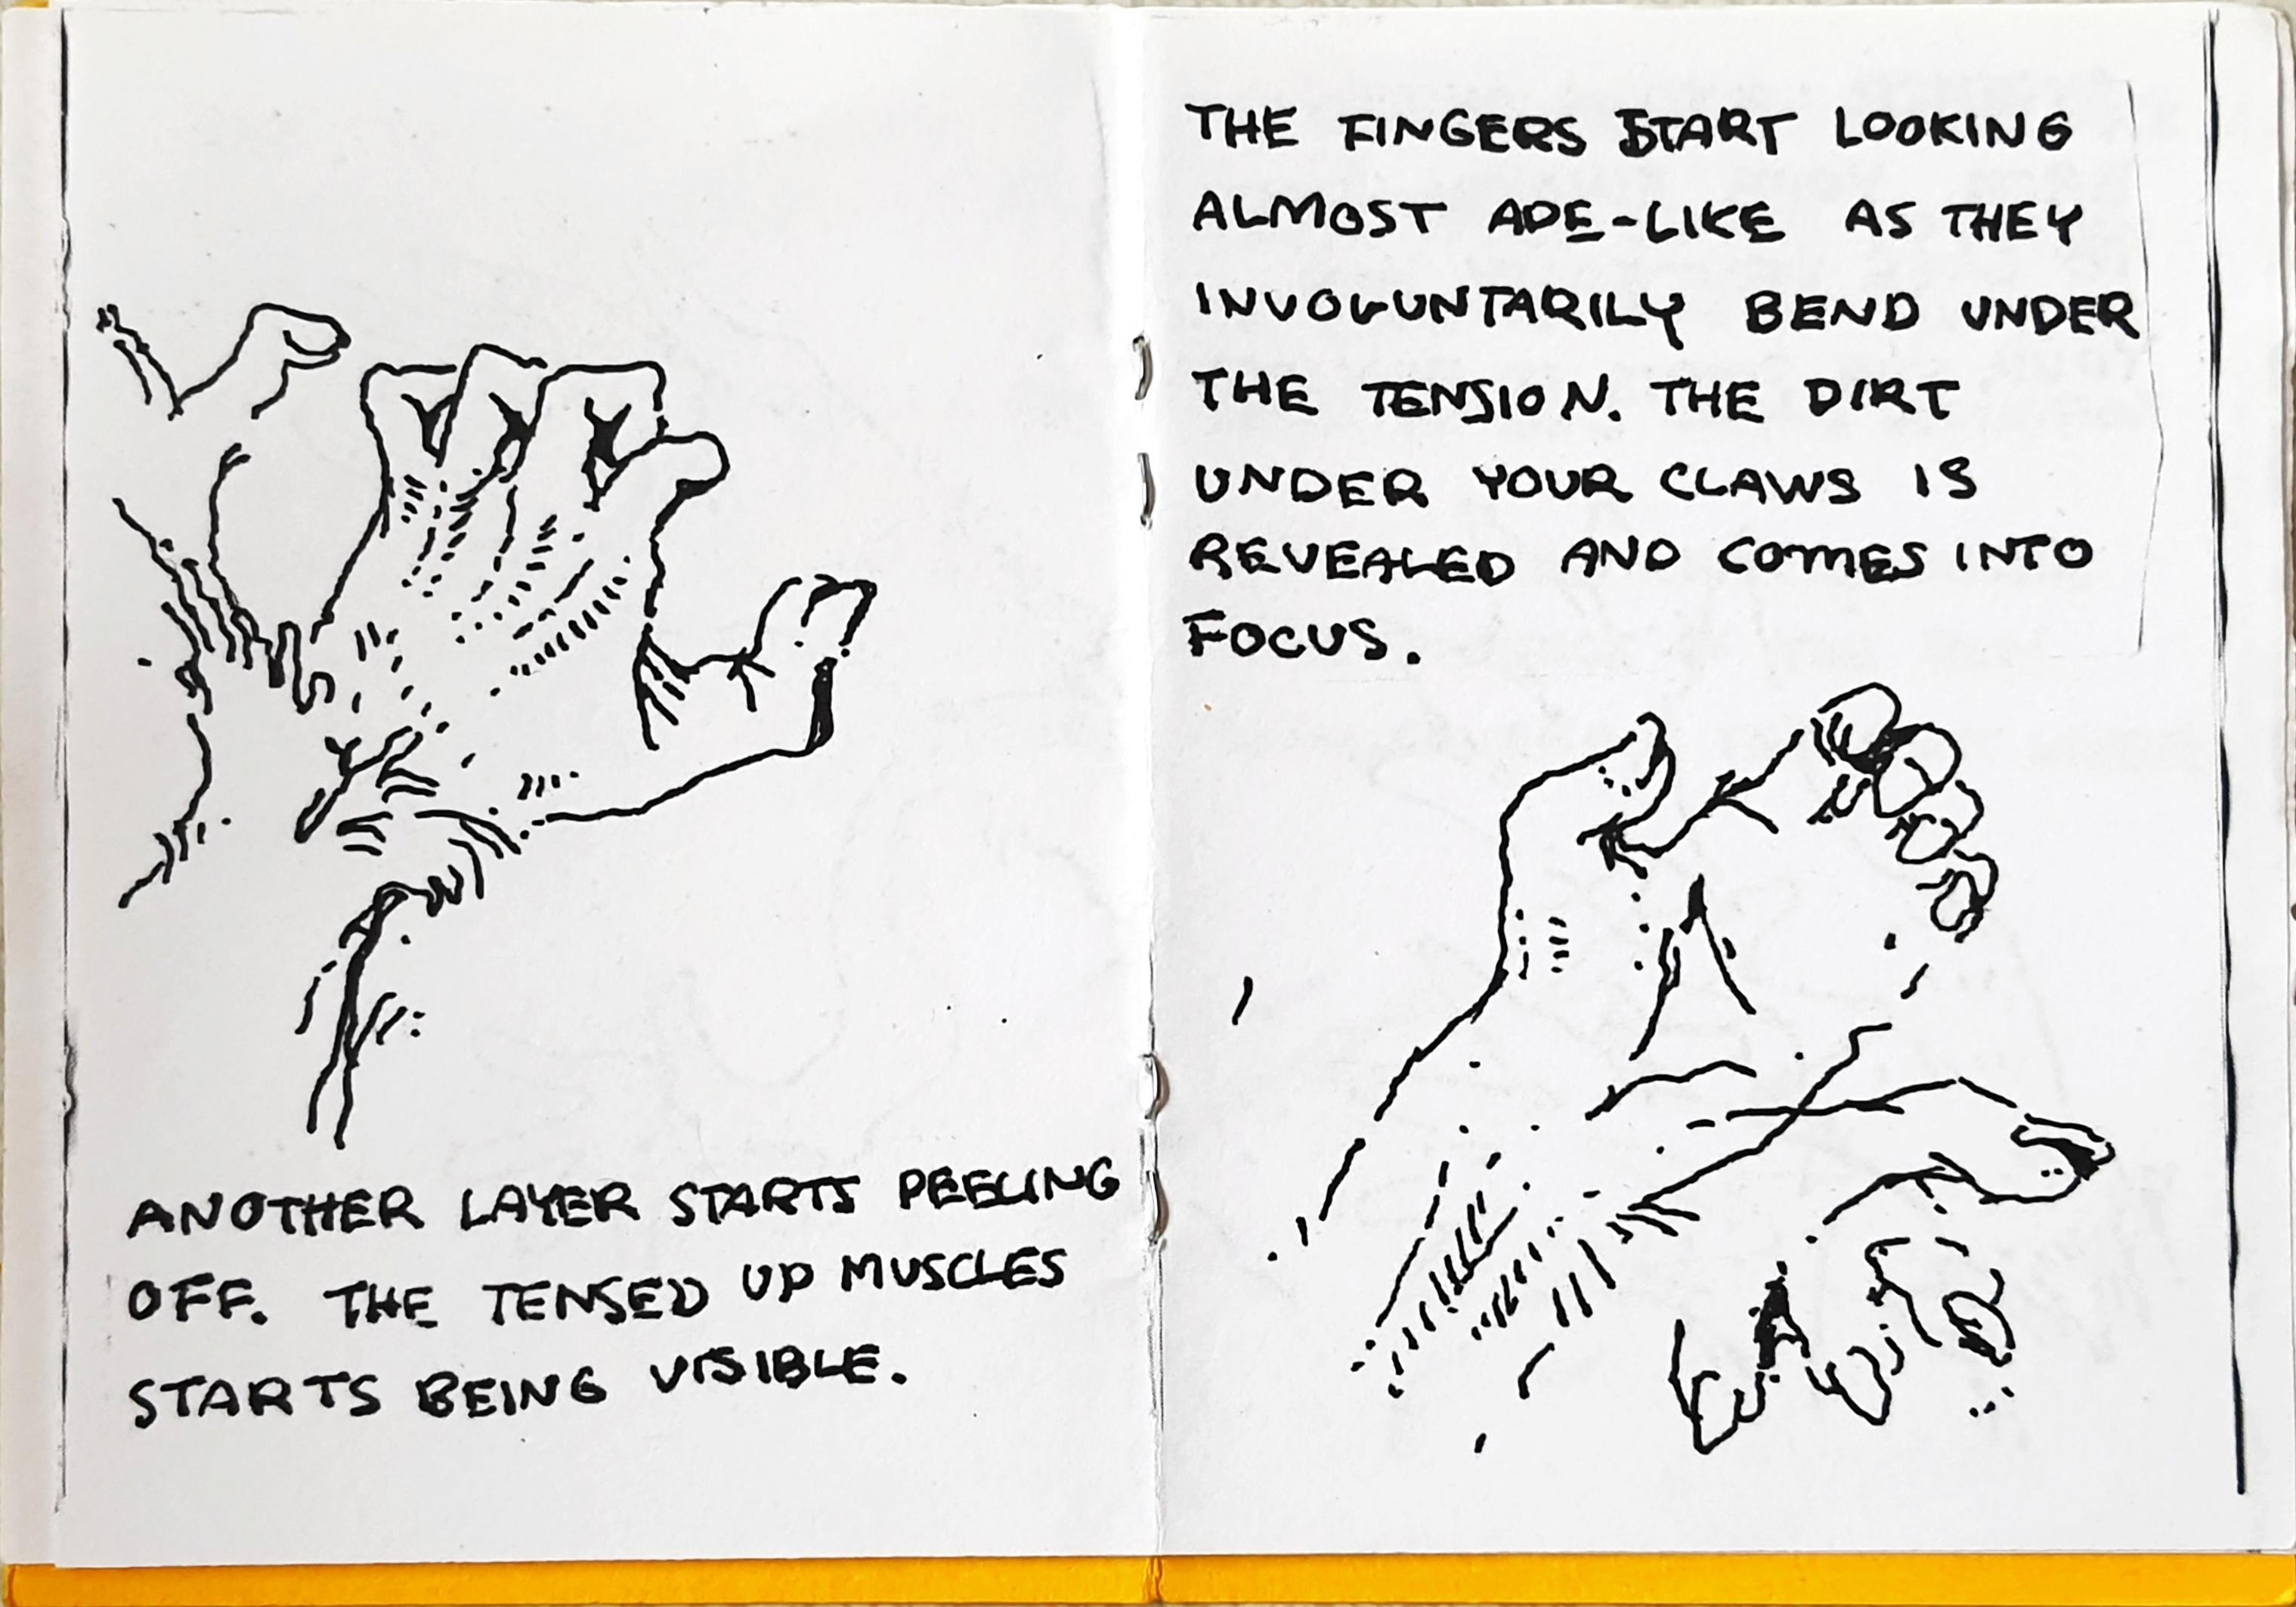 ANOTHER LAYER STARTS PEELING
OFF. THE TENSED UP MUSCLES
STARTS BEING VISIBLE.
THE FINGERS START LOOKING
ALMOST APE-LIKE AS THEY
INVOLUNTARILY BEND UNDER
THE TENSION. THE DIRT
UNDER YOUR CLAWS IS
REVEALED AND COMES INTO
FOCUS.